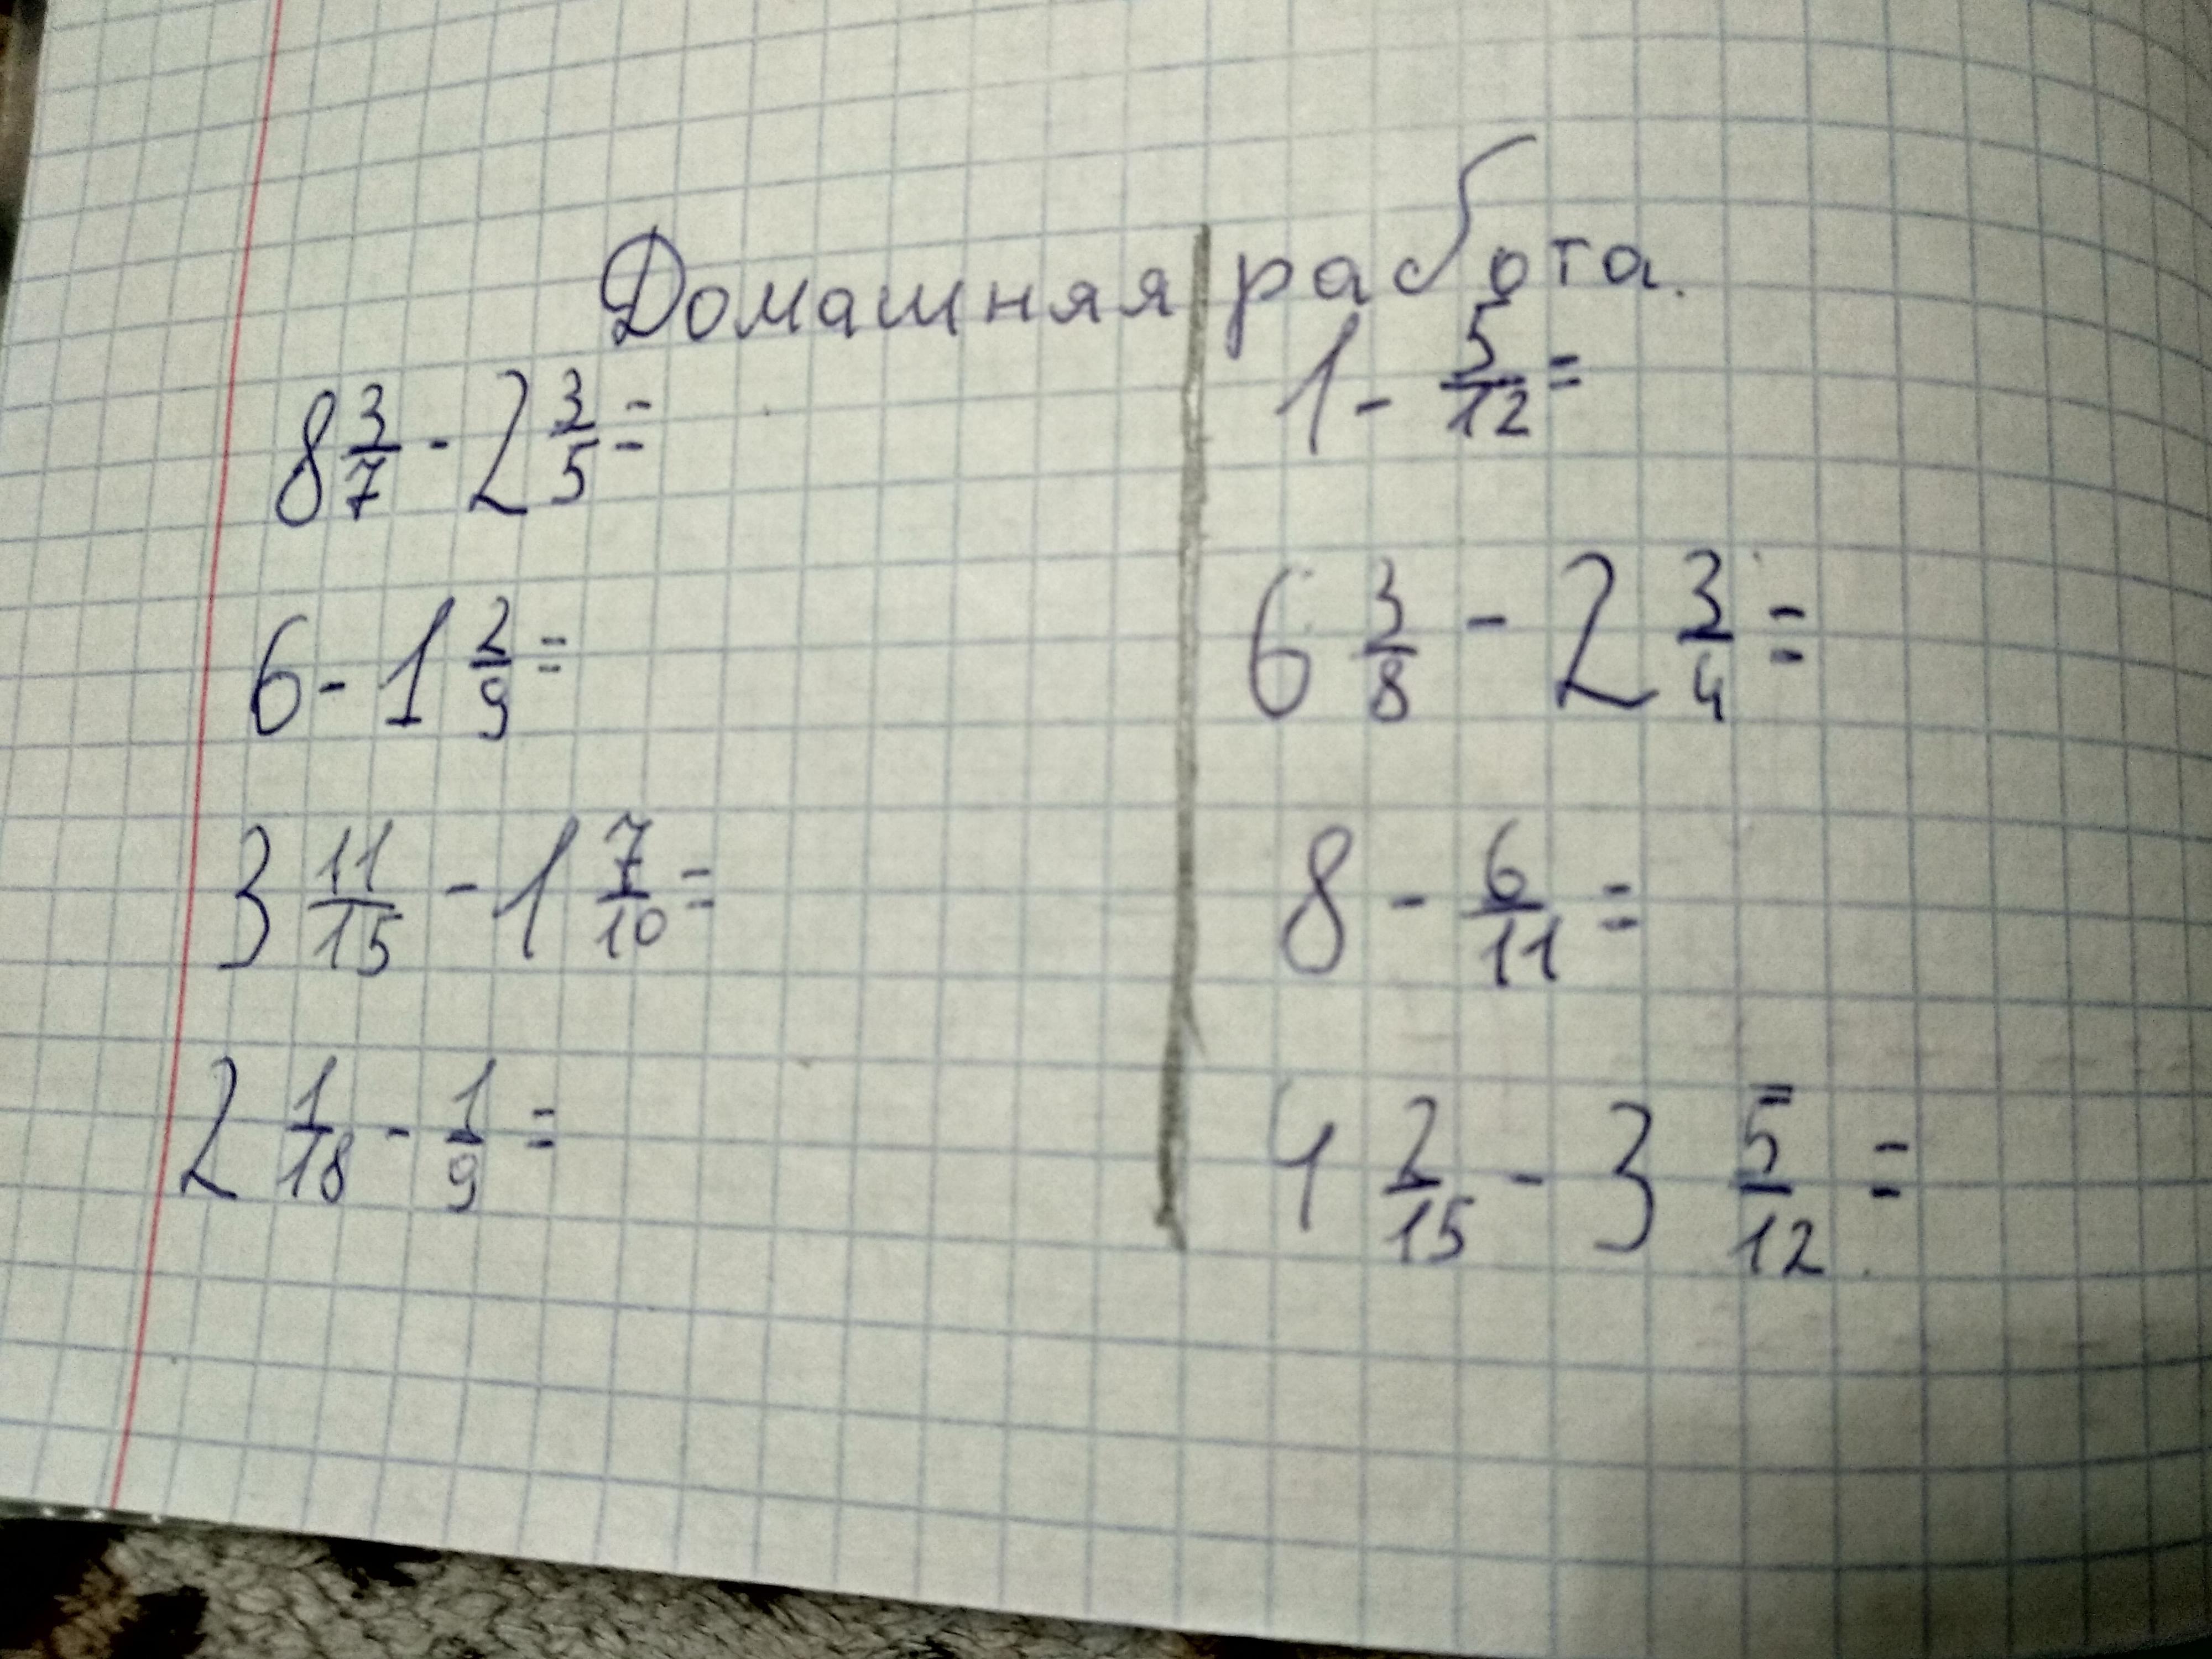 Домашняя работа.
8 3/7 - 2 3/5 =
6 - 1 2/9 =
3 11/15 - 1 7/10 =
2 1/18 - 1/9 =
1 - 5/12 =
6 3/8 - 2 3/4 =
8 - 6/11 =
4 2/15 - 3 5/12 =